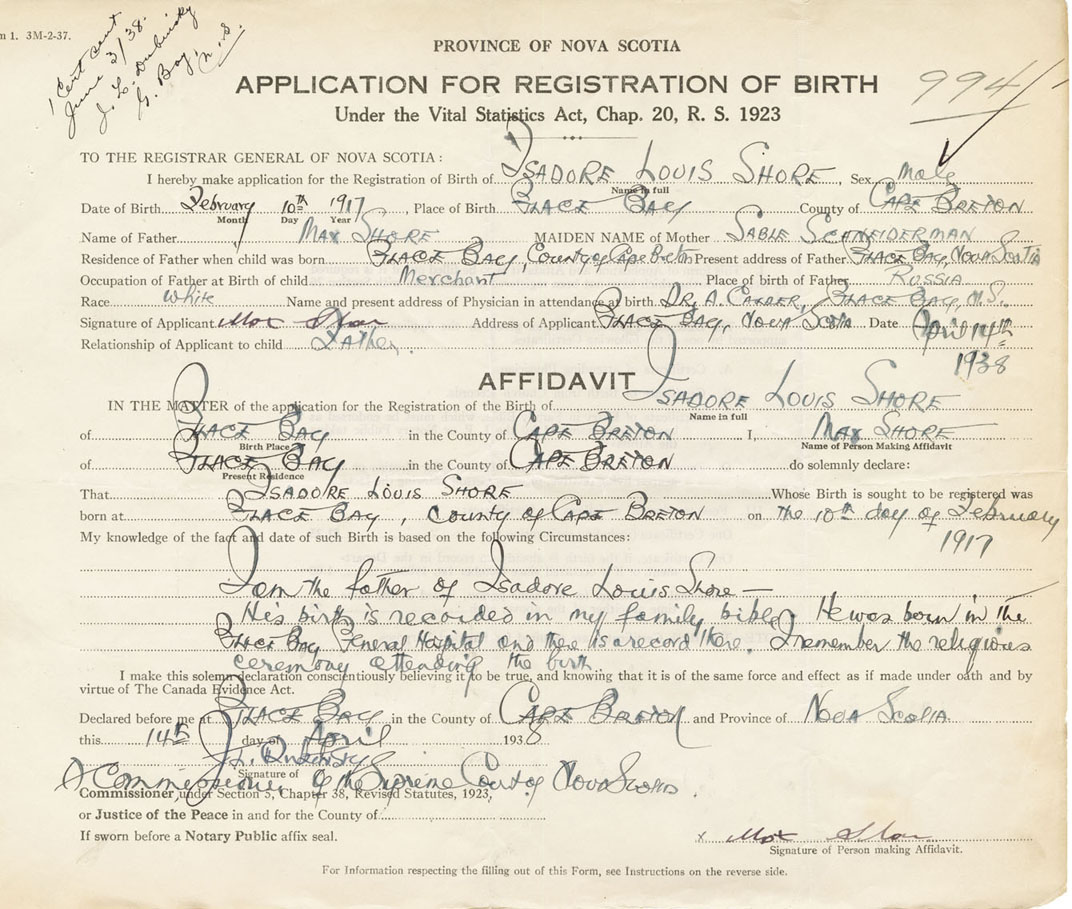 m 1. 3M-2-37.
1 Cert cont
June 3/38.
J. L. Dubinsky
G. Bay, N. S.
994
PROVINCE OF NOVA SCOTIA
APPLICATION FOR REGISTRATION OF BIRTH
Under the Vital Statistics Act, Chap. 20, R. S. 1923
TO THE REGISTRAR GENERAL OF NOVA SCOTIA:
I hereby make application for the Registration of Birth of ISADORE LOUIS SHORE, Sex Male
Name in full
Date of Birth February 10th 1917, Place of Birth GLACE BAY County of CAPE BRETON
Month Day Year
Name of Father MAX SHORE MAIDEN NAME of Mother SABLE SCHNEIDERMAN
Residence of Father when child was born GLACE BAY, County of Cape Breton Present address of Father GLACE BAY, NOVA SCOTIA
Occupation of Father at Birth of child Merchant Place of birth of Father RUSSIA
Race White Name and present address of Physician in attendance at birth DR. A. CALDER, GLACE BAY, N.S.
Signature of Applicant Max Shore Address of Applicant GLACE BAY, NOVA SCOTIA Date April 14th
1938
Relationship of Applicant to child Father.
AFFIDAVIT
IN THE MATTER of the application for the Registration of the Birth of ISADORE LOUIS SHORE
Name in full
of GLACE BAY in the County of CAPE BRETON I, MAX SHORE
Birth Place Name of Person Making Affidavit
of GLACE BAY in the County of CAPE BRETON do solemnly declare:
Present Residence
That ISADORE LOUIS SHORE Whose Birth is sought to be registered was
born at GLACE BAY, County of CAPE BRETON on the 10th day of February
1917
My knowledge of the fact and date of such Birth is based on the following Circumstances:
I am the father of Isadore Louis Shore —
His birth is recorded in my family bible. He was born in the
GLACE BAY General Hospital and there is a record there. I remember the religious
ceremony attending the birth.
I make this solemn declaration conscientiously believing it to be true, and knowing that it is of the same force and effect as if made under oath and by
virtue of The Canada Evidence Act.
Declared before me at GLACE BAY in the County of CAPE BRETON and Province of NOVA SCOTIA.
this 14th day of April 1938
J. L. Dubinsky
Signature of
A Commissioner of the Supreme Court of Nova Scotia.
Commissioner, under Section 5, Chapter 38, Revised Statutes, 1923,
or Justice of the Peace in and for the County of
If sworn before a Notary Public affix seal.
x Max Shore
Signature of Person making Affidavit.
For Information respecting the filling out of this Form, see Instructions on the reverse side.